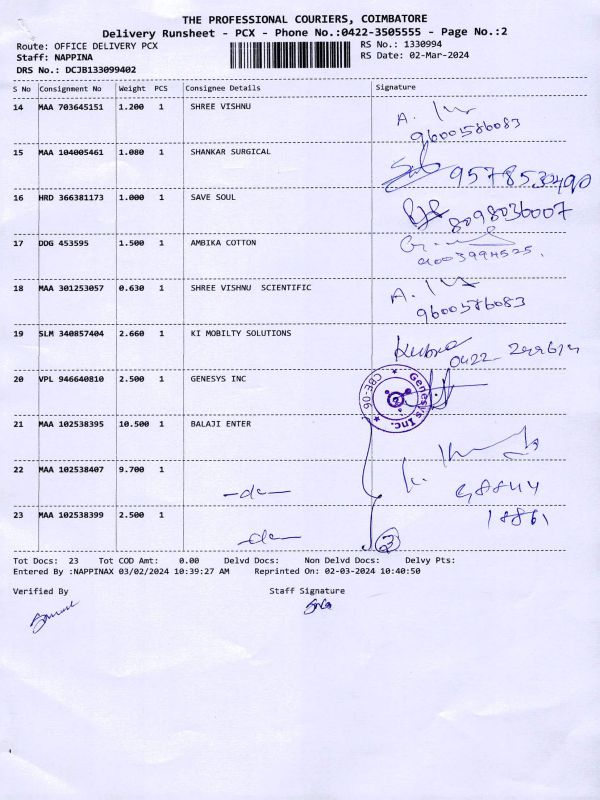 THE PROFESSIONAL COURIERS, COIMBATORE
Delivery Runsheet - PCX - Phone No.:0422-3505555 - Page No.:2
Route: OFFICE DELIVERY PCX RS No.: 1330994
Staff: NAPPINA RS Date: 02-Mar-2024
DRS No.: DCJB133099402
S No Consignment No Weight PCS Consignee Details Signature
14 MAA 703645151 1.200 1 SHREE VISHNU
9600586083
15 MAA 104005461 1.080 1 SHANKAR SURGICAL
16 HRD 366381173 1.000 1 SAVE SOUL
8098036007
17 DDG 453595 1.500 1 AMBIKA COTTON
18 MAA 301253057 0.630 1 SHREE VISHNU SCIENTIFIC
9600586083
19 SLM 340857404 2.660 1 KI MOBILTY SOLUTIONS
20 VPL 946640810 2.500 1 GENESYS INC
Genesys Inc.
CBE-06
21 MAA 102538395 10.500 1 BALAJI ENTER
22 MAA 102538407 9.700 1 -do-
23 MAA 102538399 2.500 1 -do-
3
Tot Docs: 23 Tot COD Amt: 0.00 Delvd Docs: Non Delvd Docs: Delvy Pts:
Entered By :NAPPINAX 03/02/2024 10:39:27 AM Reprinted On: 02-03-2024 10:40:50
Verified By Staff Signature